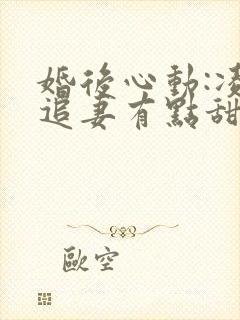 婚後心動:凌
追妻有點甜
歐空